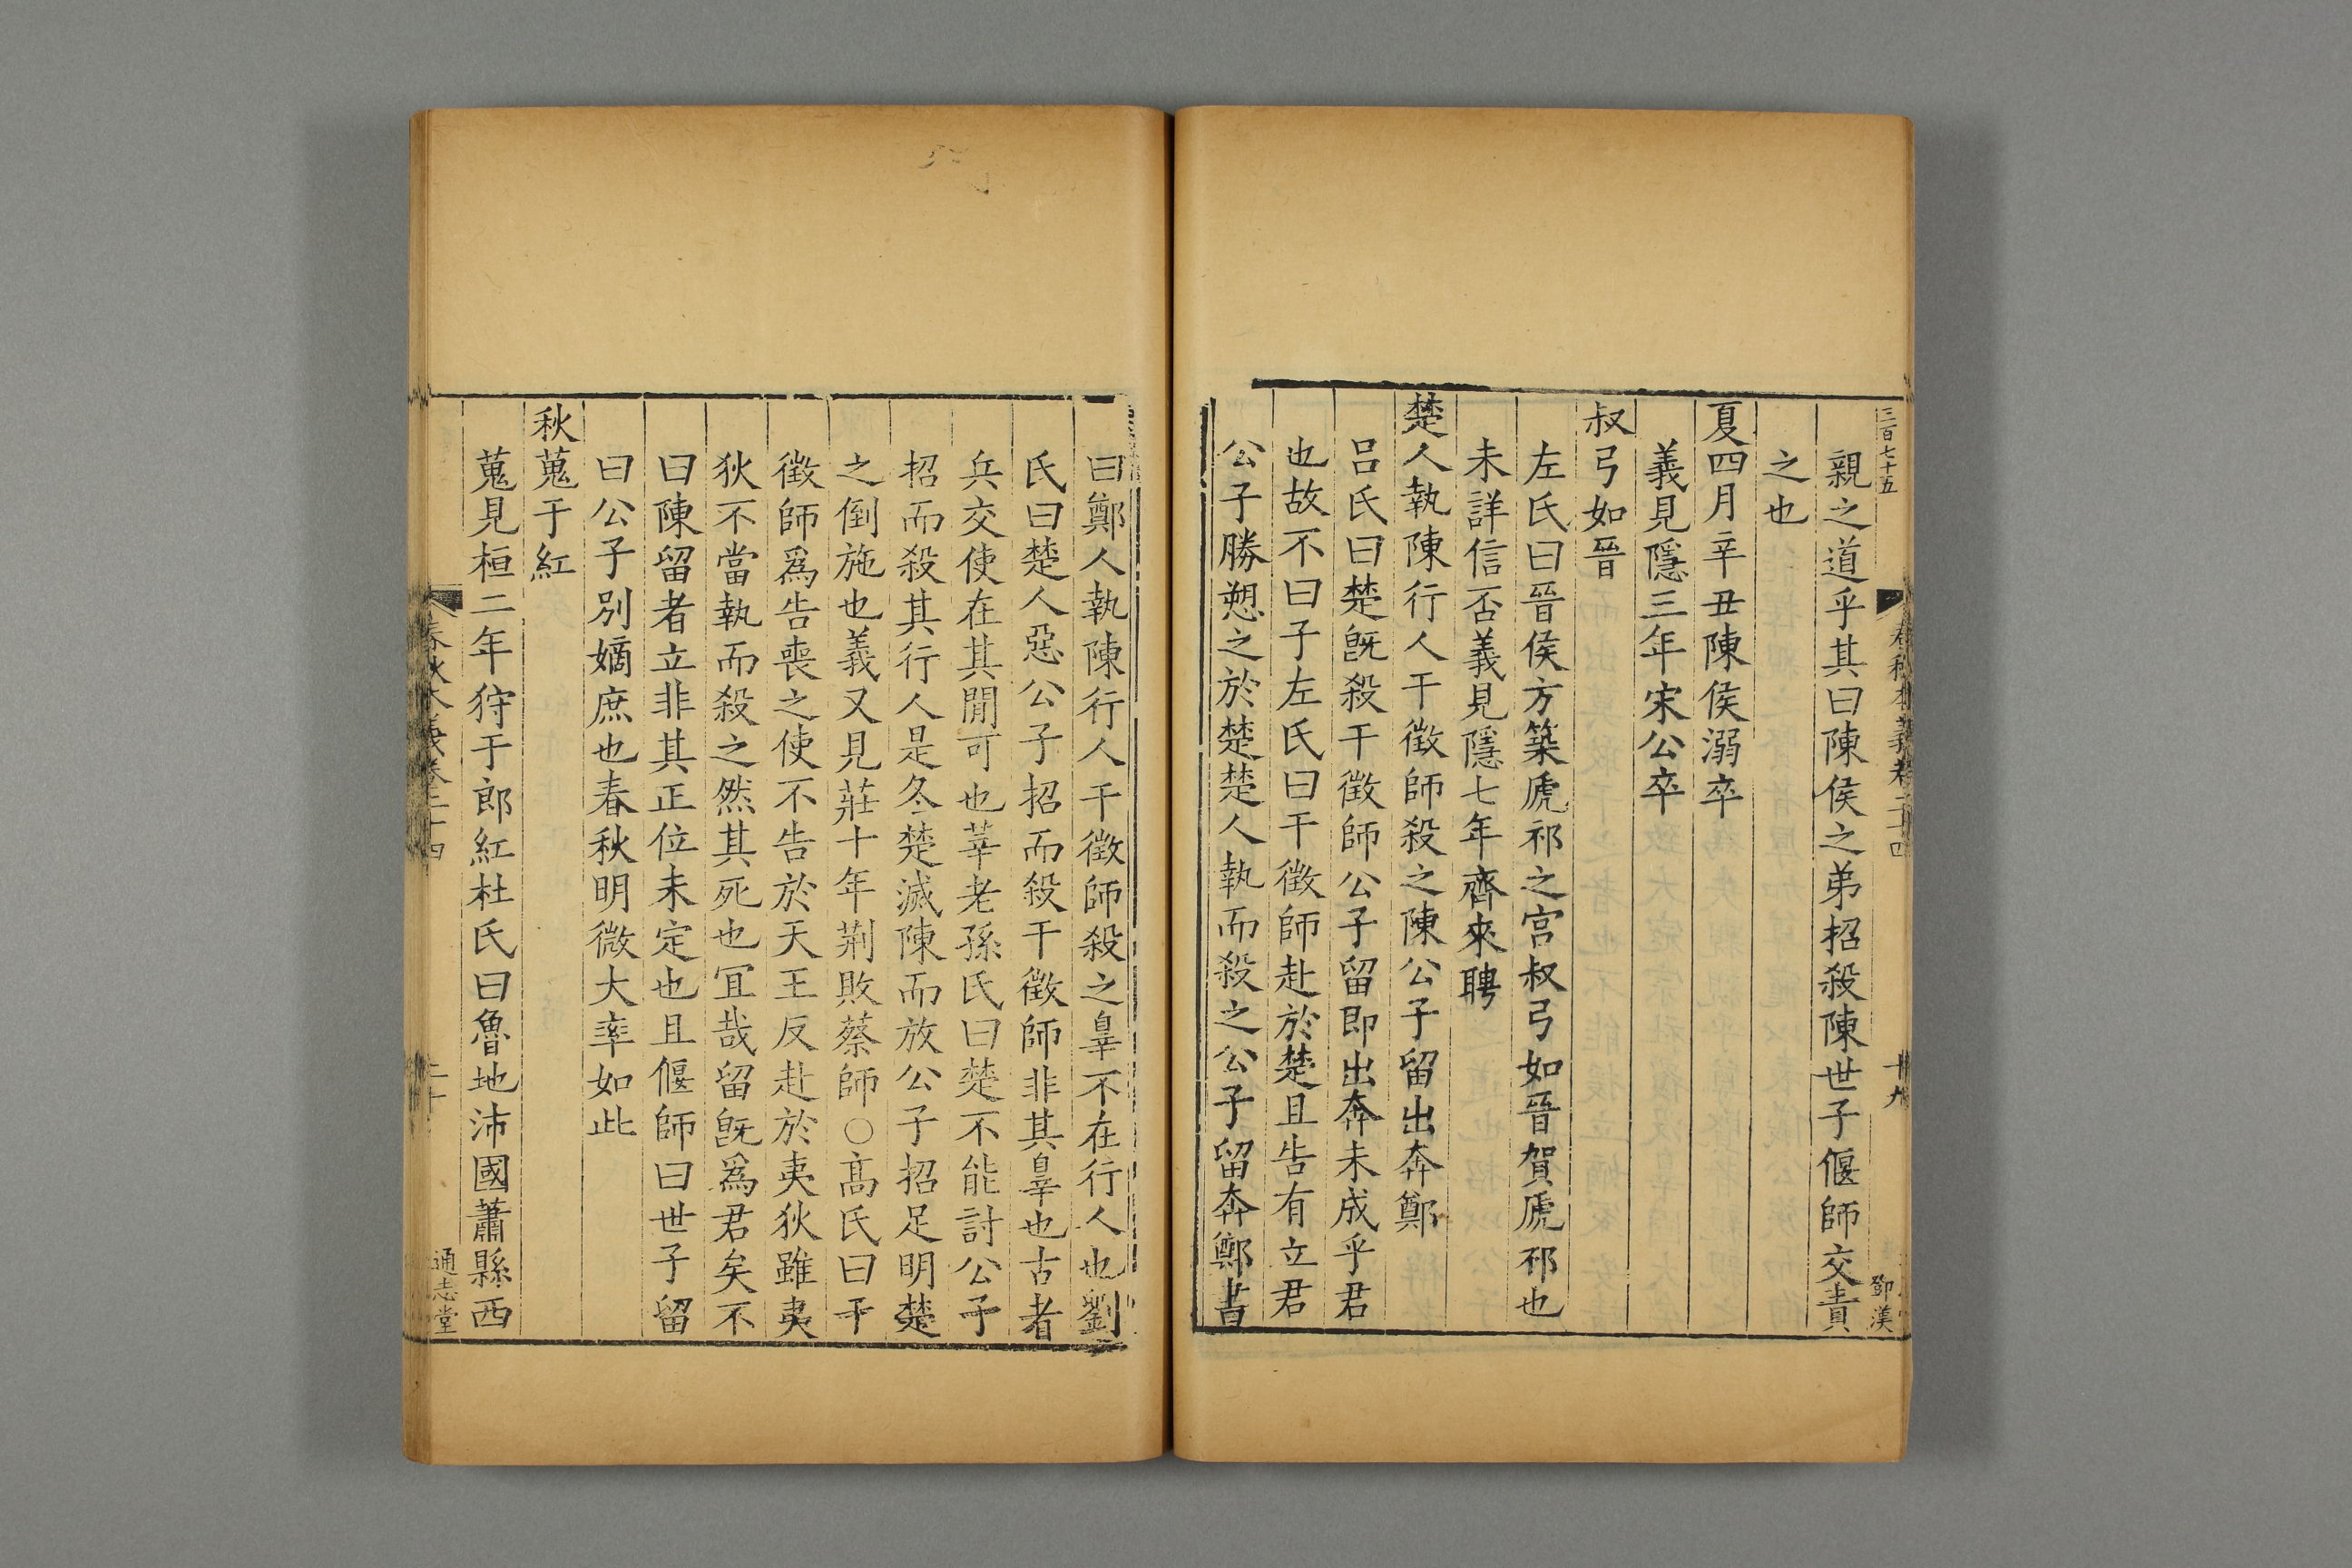 三百七十五
春秋本義卷二十四
十九
鄧漢
親之道乎其曰陳侯之弟招殺陳世子偃師交責
之也
夏四月辛丑陳侯溺卒
義見隱三年宋公卒
叔弓如晉
左氏曰晉侯方築虒祁之宮叔弓如晉賀虒祁也
未詳信否義見隱七年齊來聘
楚人執陳行人干徵師殺之陳公子留出奔鄭
呂氏曰楚旣殺干徵師公子留即出奔未成乎君
也故不曰子左氏曰干徵師赴於楚且告有立君
公子勝愬之於楚楚人執而殺之公子留奔鄭書
曰鄭人執陳行人干徵師殺之辠不在行人也劉
氏曰楚人惡公子招而殺干徵師非其辠也古者
兵交使在其閒可也莘老孫氏曰楚不能討公子
招而殺其行人是冬楚滅陳而放公子招足明楚
之倒施也義又見莊十年荆敗蔡師○髙氏曰干
徵師爲告喪之使不告於天王反赴於夷狄雖夷
狄不當執而殺之然其死也冝哉留旣爲君矣不
曰陳留者立非其正位未定也且偃師曰世子留
曰公子別嫡庶也春秋明微大率如此
秋蒐于紅
蒐見桓二年狩于郎紅杜氏曰魯地沛國蕭縣西
春秋本義卷二十四
二十
通志堂